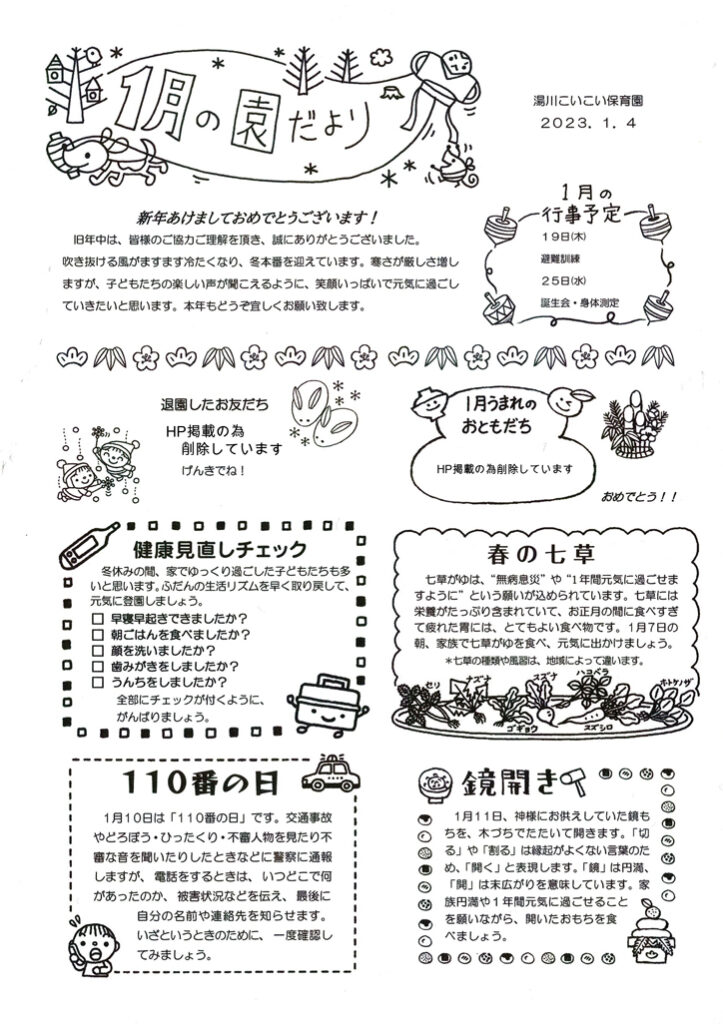 1月の園だより
湯川こいこい保育園
2023．1．4
新年あけましておめでとうございます！
旧年中は、皆様のご協力ご理解を頂き、誠にありがとうございました。
吹き抜ける風がますます冷たくなり、冬本番を迎えています。寒さが厳しさ増し
ますが、子どもたちの楽しい声が聞こえるように、笑顔いっぱいで元気に過ごし
ていきたいと思います。本年もどうぞ宜しくお願い致します。
1月の
行事予定
19日(木)
避難訓練
25日(水)
誕生会・身体測定
退園したお友だち
HP掲載の為
削除しています
げんきでね！
1月うまれの
おともだち
HP掲載の為削除しています
おめでとう！！
健康見直しチェック
冬休みの間、家でゆっくり過ごした子どもたちも多
いと思います。ふだんの生活リズムを早く取り戻して、
元気に登園しましょう。
□ 早寝早起きできましたか？
□ 朝ごはんを食べましたか？
□ 顔を洗いましたか？
□ 歯みがきをしましたか？
□ うんちをしましたか？
全部にチェックが付くように、
がんばりましょう。
春の七草
七草がゆは、“無病息災”や“1年間元気に過ごせま
すように”という願いが込められています。七草には
栄養がたっぷり含まれていて、お正月の間に食べすぎ
て疲れた胃には、とてもよい食べ物です。1月7日の
朝、家族で七草がゆを食べ、元気に出かけましょう。
＊七草の種類や風習は、地域によって違います。
セリ ナズナ スズナ ハコベラ ホトケノザ
ゴギョウ スズシロ
110番の日
1月10日は「110番の日」です。交通事故
やどろぼう・ひったくり・不審人物を見たり不
審な音を聞いたりしたときなどに警察に通報
しますが、電話をするときは、いつどこで何
があったのか、被害状況などを伝え、最後に
自分の名前や連絡先を知らせます。
いざというときのために、一度確認し
てみましょう。
鏡開き
1月11日、神様にお供えしていた鏡も
ちを、木づちでたたいて開きます。「切
る」や「割る」は縁起がよくない言葉のた
め、「開く」と表現します。「鏡」は円満、
「開」は末広がりを意味しています。家
族円満や1年間元気に過ごせること
を願いながら、開いたおもちを食
べましょう。